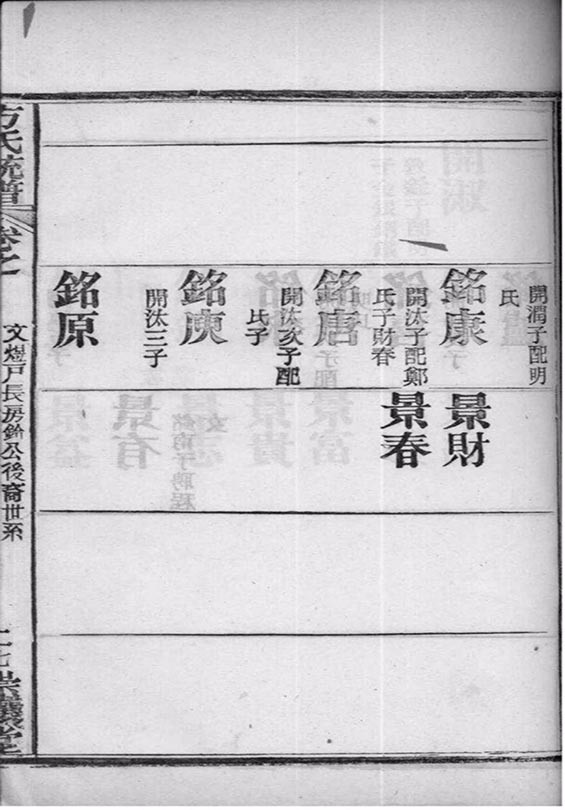 開潤子配明
氏
銘康
開汰子配鄭
氏子財春
景財
景春
銘唐
開汰次子配
氏子
銘庚
開汰三子
銘原
方氏統譜
卷之
文煜戶長房
公後裔世系